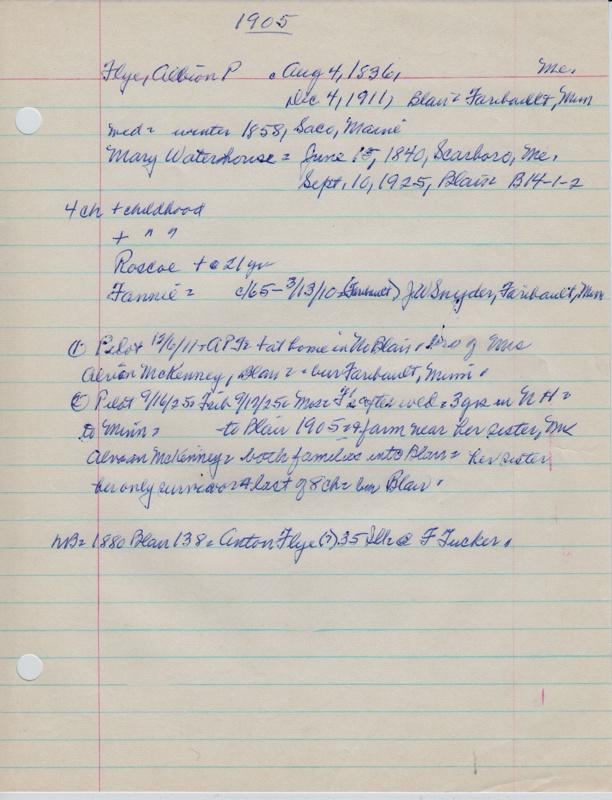 1905
Flye, Albion P Aug 4, 1836, Me.
Dec 4, 1911, Blair = Faribault, Minn
med = winter 1858, Saco, Maine
Mary Waterhouse = June 15, 1840, Scarboro, Me.
Sept. 10, 1925, Blair = B14-1-2
4 ch + childhood
+ " "
Roscoe + @ 21 yr
Fannie = c/65 - 3/13/10 = (Faribault) J W Snyder, Faribault, Minn
① Pilot 12/6/11 = A P F = + at home in No Blair, bro of Mrs
Alvin McKenney, Blair = bur Faribault, Minn.
② Pilot 9/16/25 = Trib 9/17/25 = Mos = F = after wed = 3 yrs in N H =
to Minn = to Blair 1905 = farm near her sister, Mrs
Alvin McKenney = both families into Blair = her sister
her only survivor = last of 8 ch = bur Blair.
NB = 1880 Blair 138 = Anton Flye (?) 35 @ F Tucker.